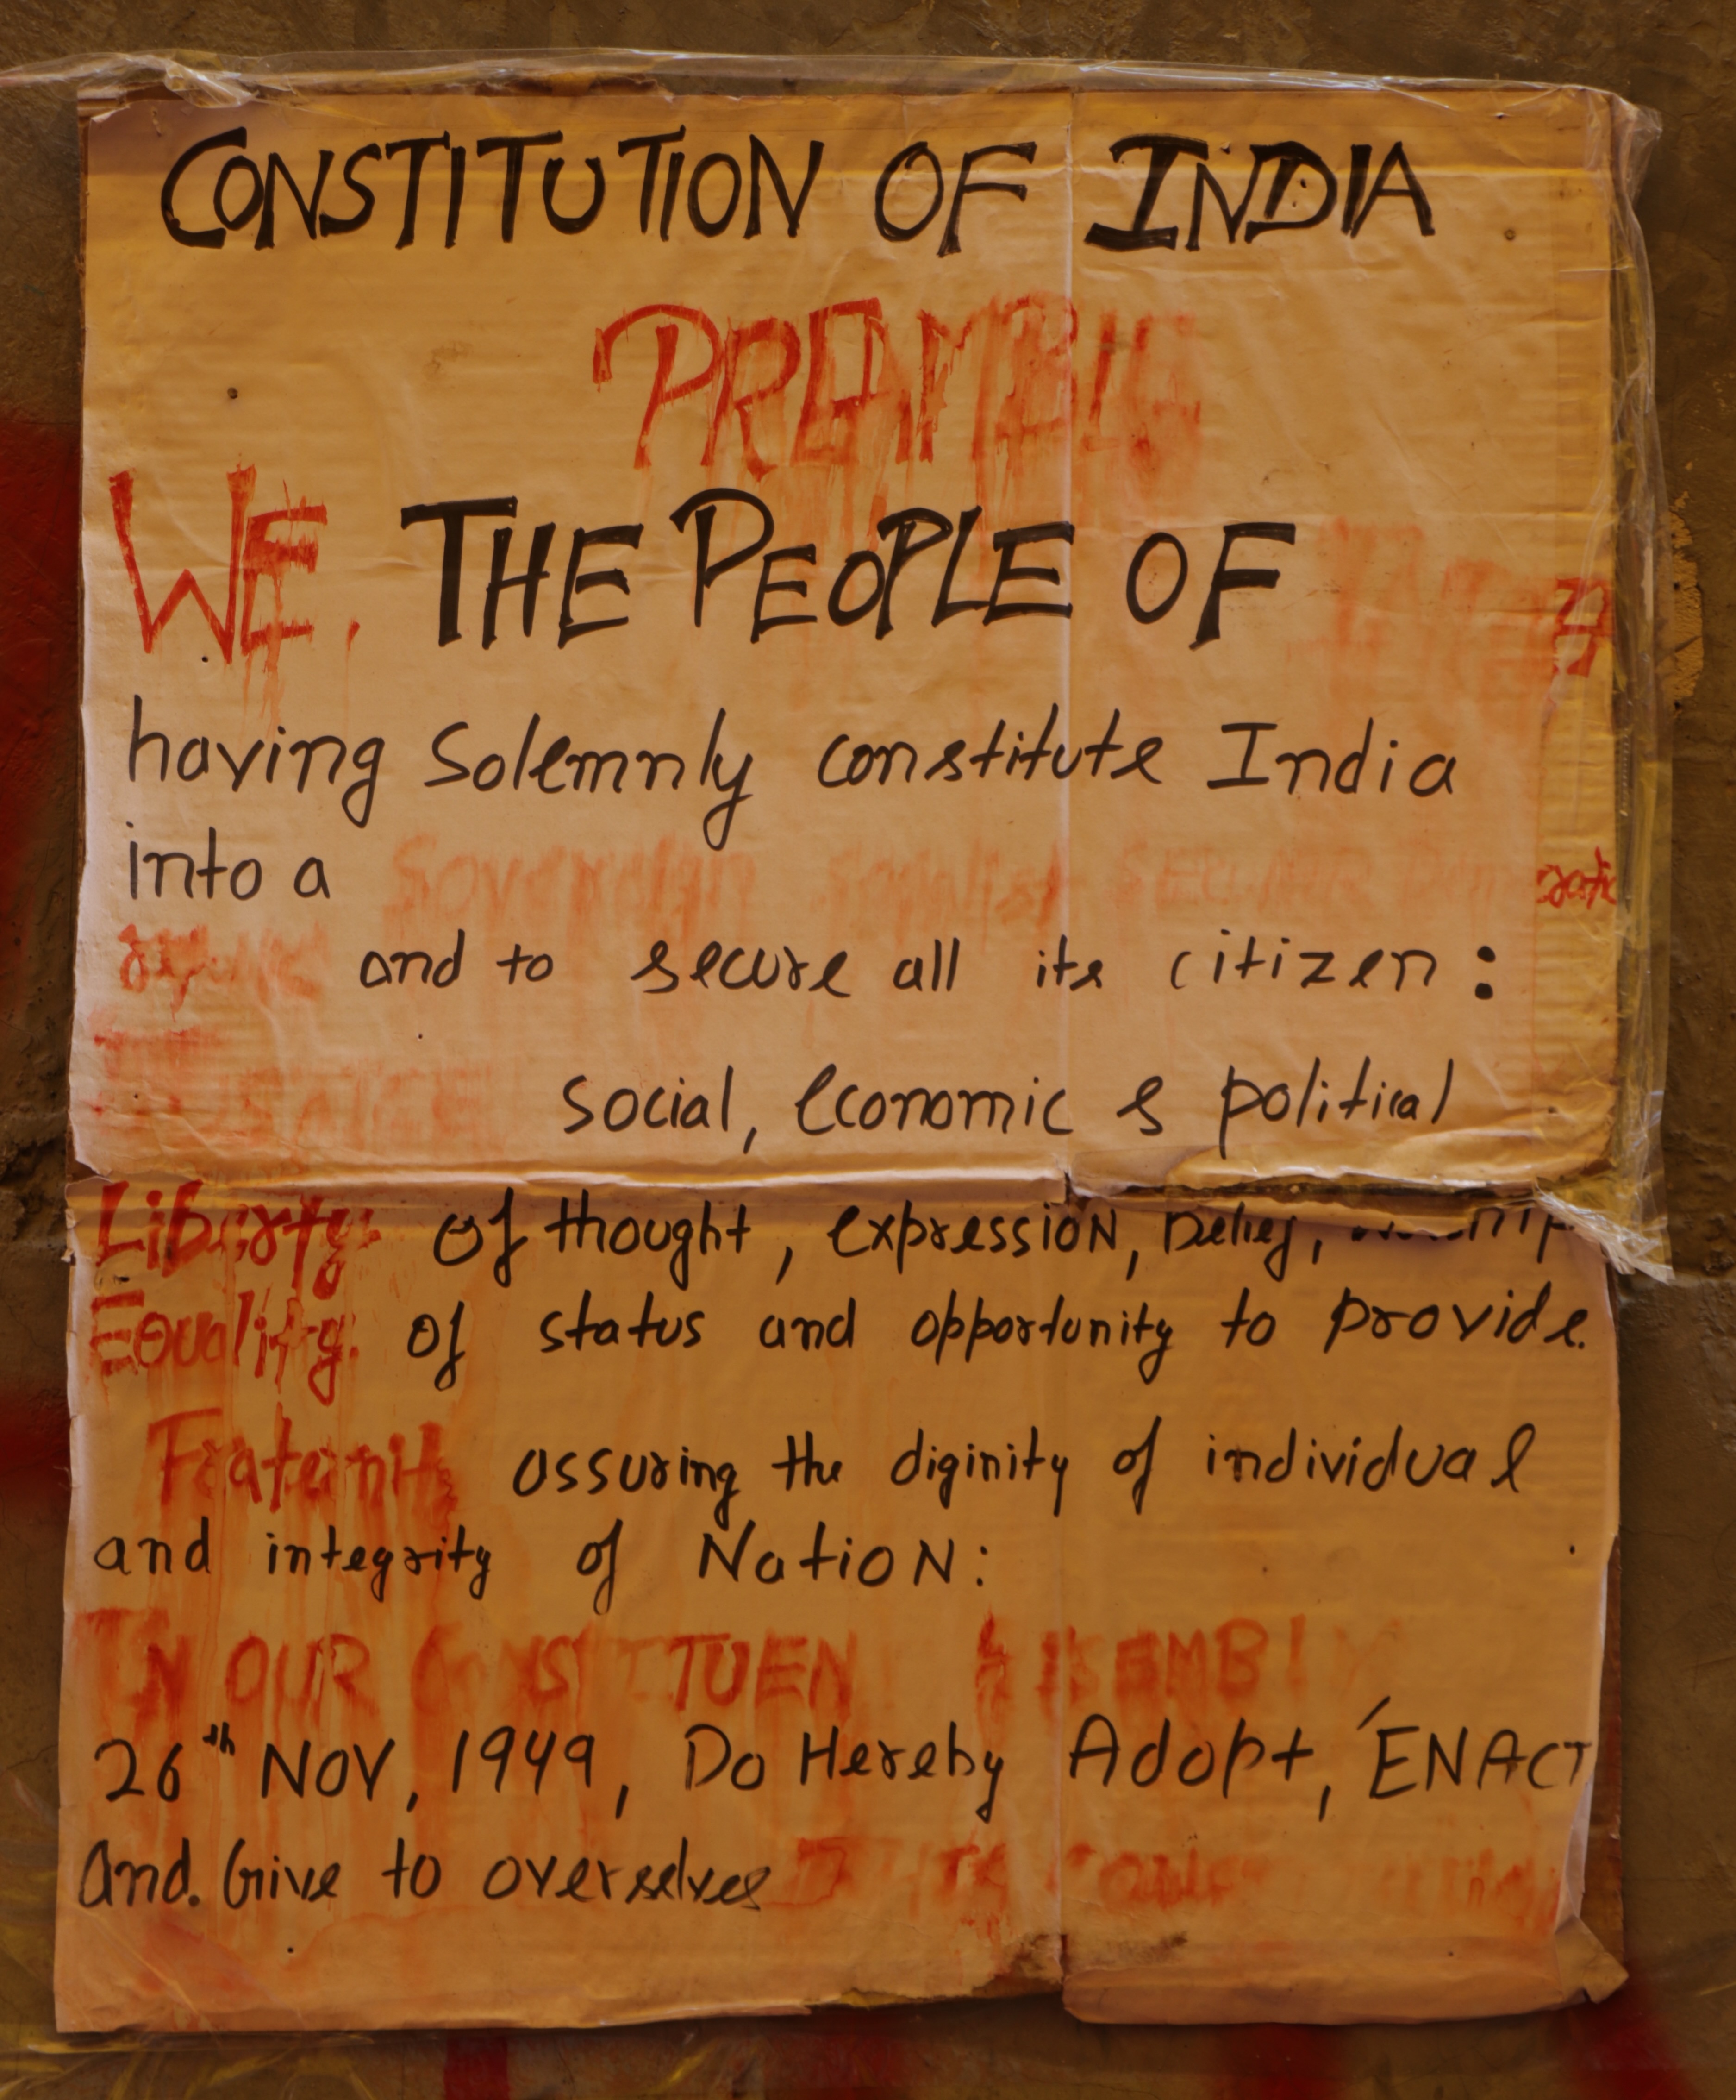 CONSTITUTION OF INDIA
PREAMBLE
WE, THE PEOPLE OF
having Solemnly constitute India
into a Sovereign Socialist SECULAR
and to secure all its citizen :
JUSTICE social, Economic & political
Liberty of thought, expression, Belief,
Equality of status and opportunity to provide.
Fraternity assuring the diginity of individual
and integrity of Nation:
IN OUR CONSTITUEN ASSEMBLY
26th NOV, 1949, Do Hereby Adopt, ENACT
And. Give to overselves